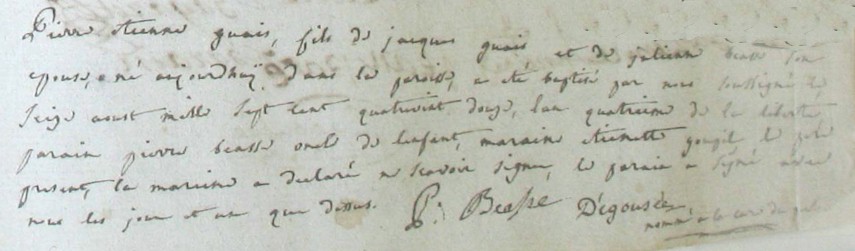 Pierre etienne guais, fils de jacques guais et de julienne beasse son
epouse, né aujourdhuÿ dans la paroisse, a été baptisé par nous soussigné le
seize aoust mille sept cent quatrevint douze, lan quatrieme de la liberté
parain pierre beasse oncle de lenfant, maraine etiennette le
present, la maraine a declaré ne scavoir signer, le parain a signé avec
nous les jour et an que dessus. P: Beasse Dégousée,
nommé a la cure de